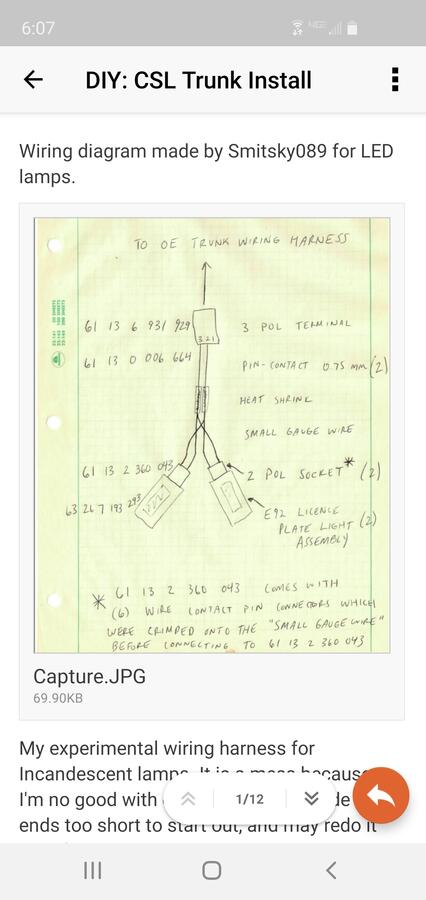 6:07
DIY: CSL Trunk Install
Wiring diagram made by Smitsky089 for LED
lamps.
TO OE TRUNK WIRING HARNESS
61 13 6 931 929
3 2 1
3 POL TERMINAL
61 13 0 006 664
PIN-CONTACT 0.75 MM (2)
HEAT SHRINK
SMALL GAUGE WIRE
61 13 2 360 043
2 POL SOCKET* (2)
63 26 7 193 293
E92 LICENCE
PLATE LIGHT (2)
ASSEMBLY
* 61 13 2 360 043 COMES WITH
(6) WIRE CONTACT PIN CONNECTORS WHICH
WERE CRIMPED ONTO THE "SMALL GAUGE WIRE"
BEFORE CONNECTING TO 61 13 2 360 043
Capture.JPG
69.90KB
My experimental wiring harness for
Incandescent lamps. It is a mess because
I'm no good with
1/12
ends too short to start out, and may redo it